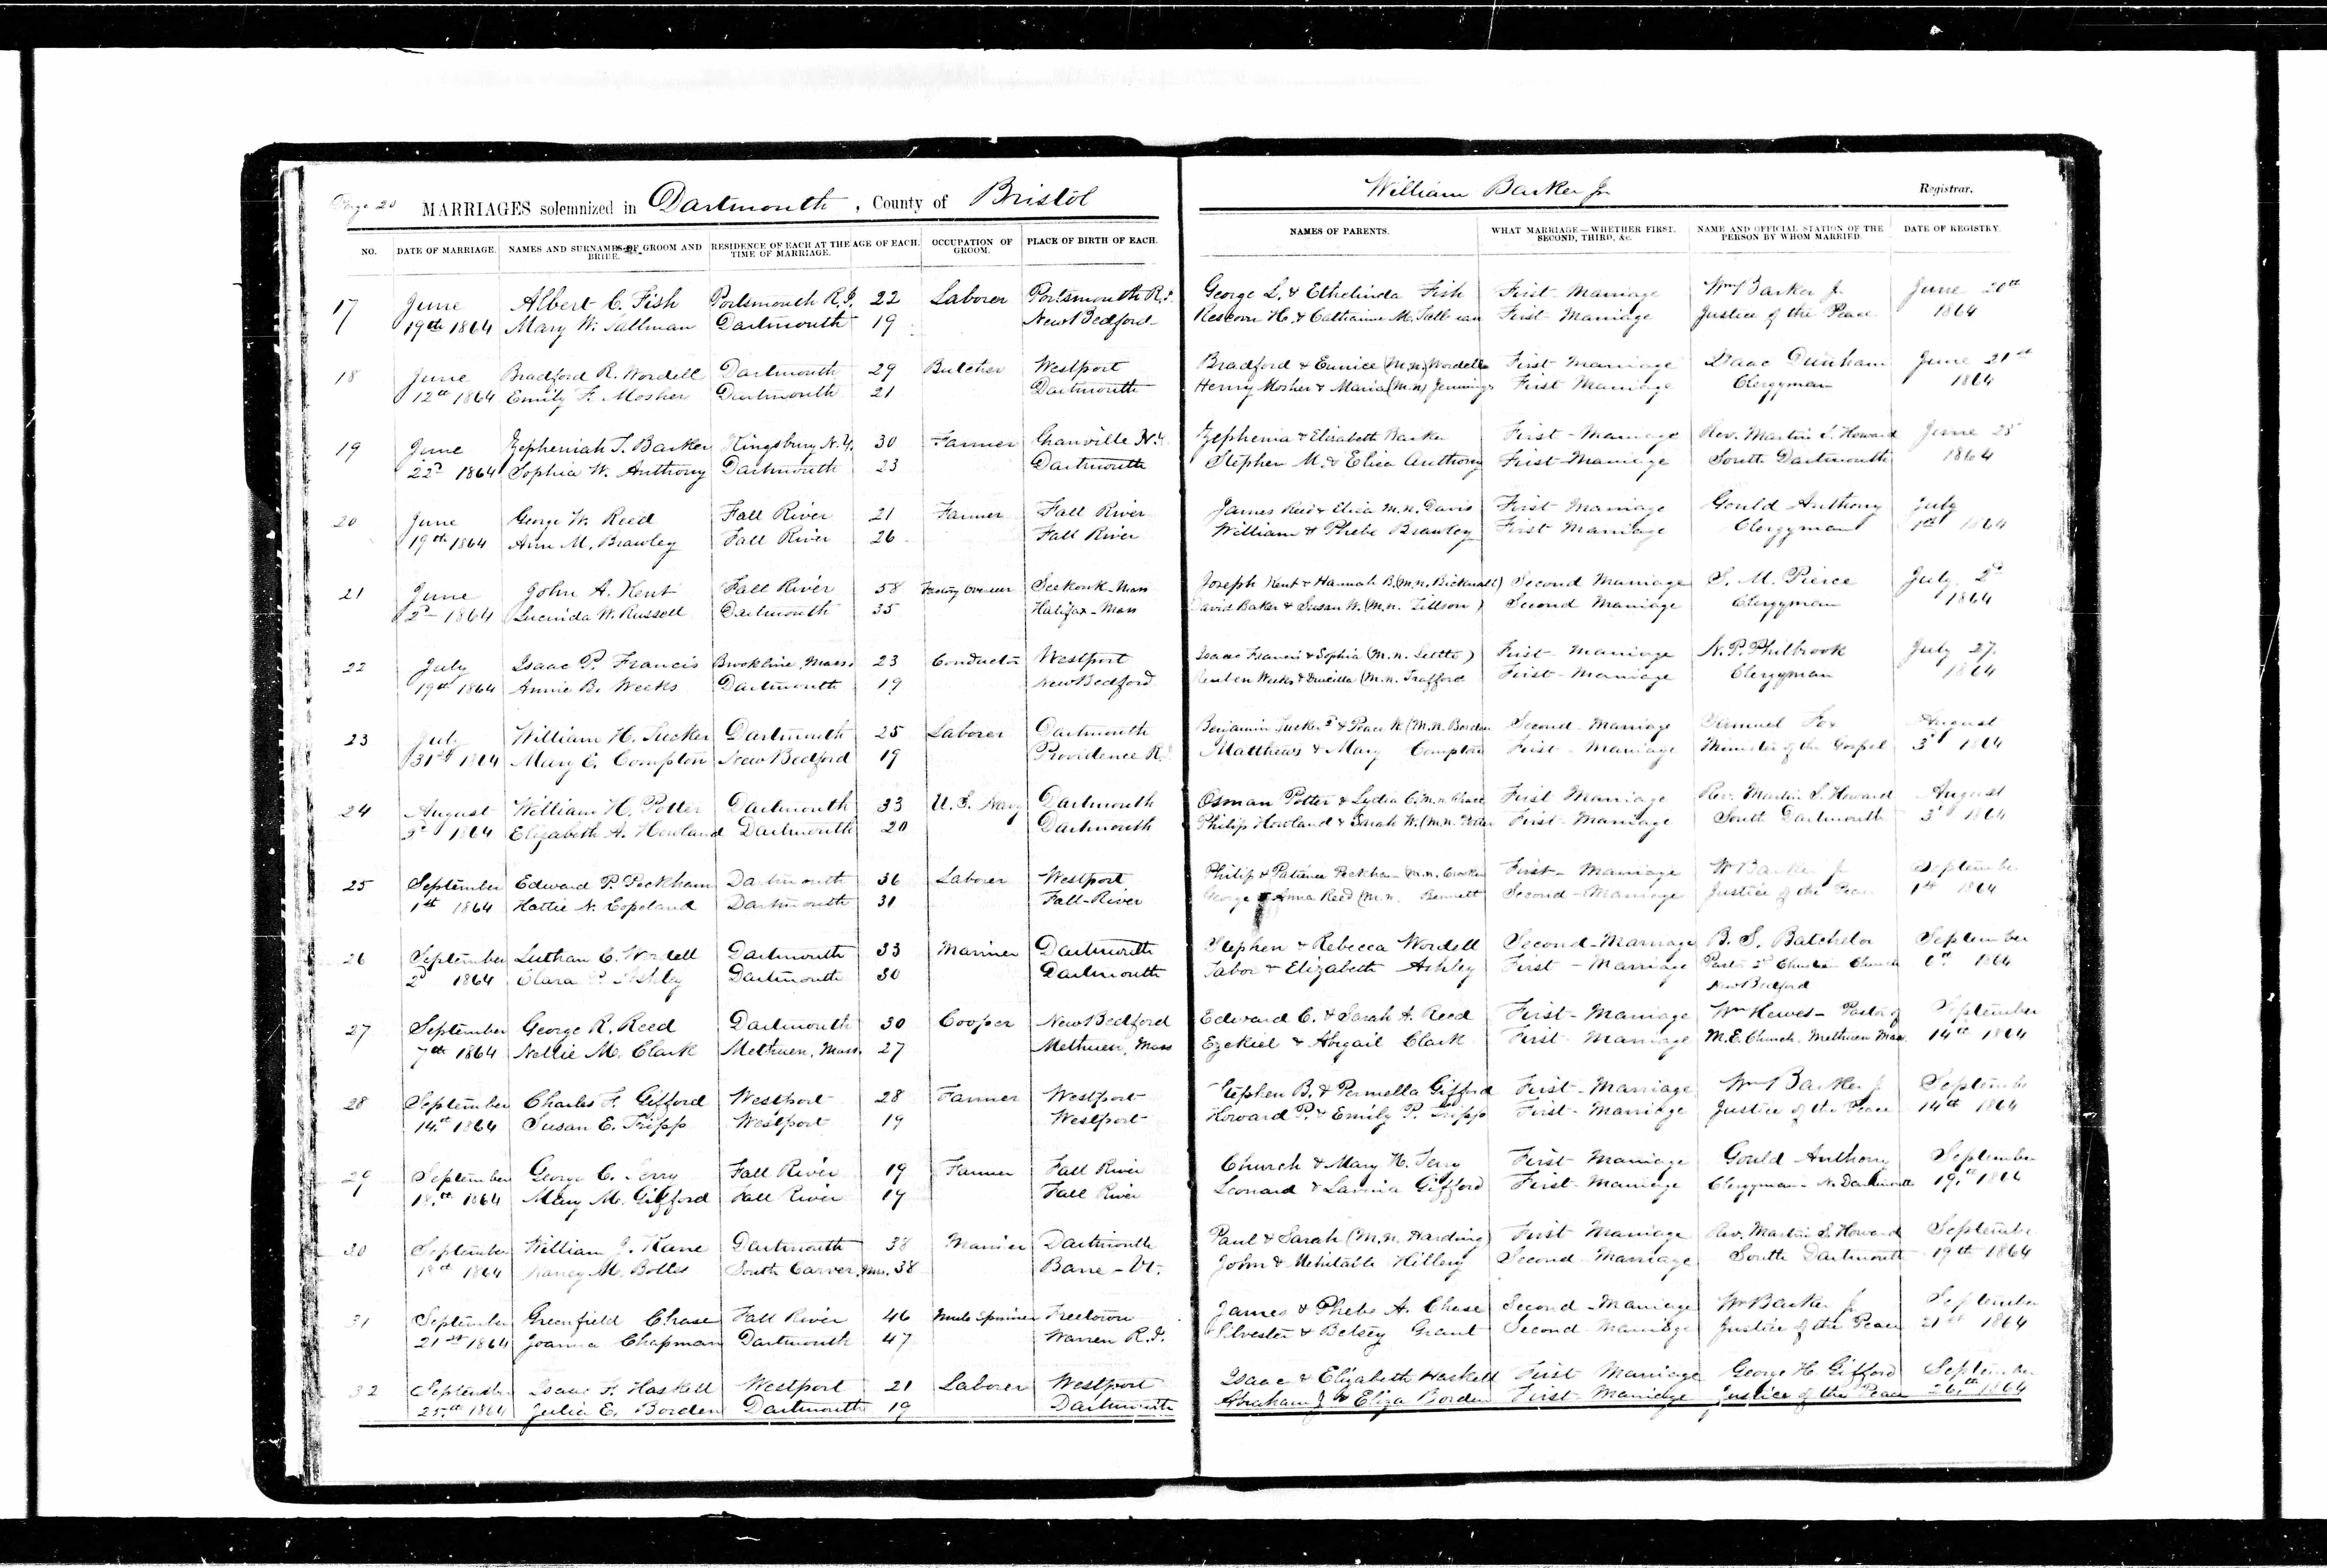 Page 20 MARRIAGES solemnized in Dartmouth, County of Bristol
William Barker Jr. Registrar.
NO. DATE OF MARRIAGE. NAMES AND SURNAMES OF GROOM AND BRIDE. RESIDENCE OF EACH AT THE TIME OF MARRIAGE. AGE OF EACH. OCCUPATION OF GROOM. PLACE OF BIRTH OF EACH. NAMES OF PARENTS. WHAT MARRIAGE—WHETHER FIRST, SECOND, THIRD, &c. NAME AND OFFICIAL STATION OF THE PERSON BY WHOM MARRIED. DATE OF REGISTRY.
17 June Albert C. Fish Portsmouth R.I. 22 Laborer Portsmouth R.I. George L. & Ethelinda Fish First Marriage Wm Barker Jr June 20th
19th 1864 Mary W. Tallman Dartmouth 19 New Bedford Restcom H. & Catharine M. Tallman First Marriage Justice of the Peace 1864
18 June Bradford R. Wordell Dartmouth 29 Butcher Westport Bradford & Eunice (M.N.) Wordell First Marriage Isaac Dunham June 21st
12th 1864 Emily F. Mosher Dartmouth 21 Dartmouth Henry Mosher & Maria (M.N) Jennings First Marriage Clergyman 1864
19 June Zepheniah T. Barker Kingsbury N.Y. 30 Farmer Granville N.Y. Zephenia & Elisabeth Barker First-Marriage Rev. Martin S. Howard June 25
22d 1864 Sophia W. Anthony Dartmouth 23 Dartmouth Stephen M. & Eliza Anthony First-Marriage South Dartmouth 1864
20 June George W. Reed Fall River 21 Farmer Fall River James Reed & Eliza M.N. Davis First Marriage Gould Anthony July
19th 1864 Ann M. Brawley Fall River 26 Fall River William & Phebe Brawley First Marriage Clergyman 1st 1864
21 June John A. Kent Fall River 58 Factory Overseer Seekonk-Mass Joseph Kent & Hannah B. (M.N. Bicknall) Second Marriage S. M. Pierce July 2d
2d 1864 Lucinda W. Russell Dartmouth 35 Halifax-Mass Davis Baker & Susan W. (M.N. Tillson) Second Marriage Clergyman 1864
22 July Isaac P. Francis Brookline, Mass. 23 Conductor Westport Isaac Francis & Sophia (M.N. ) First Marriage N. P. Philbrook July 27.
19th 1864 Annie B. Weeks Dartmouth 19 New Bedford Reuben Weeks & Drucilla (M.N. Trafford First-Marriage Clergyman 1864
23 July William H. Tucker Dartmouth 25 Laborer Dartmouth Benjamin Tucker 2d & Peace W. (M.N. Borden Second Marriage Samuel Fox August
31st 1864 Mary E. Compton New Bedford 19 Providence R.I. Matthews & Mary Compton First-Marriage Minister of the Gospel 3d 1864
24 August William H. Potter Dartmouth 33 U.S. Navy Dartmouth Osman Potter & Lydia C. M.N. Chace First Marriage Rev. Martin S. Howard August
3d 1864 Elizabeth A. Howland Dartmouth 20 Dartmouth Philip Howland & Sarah W. (M.N. Potter First-Marriage South Dartmouth 3d 1864
25 September Edward P. Peckham Dartmouth 36 Laborer Westport Philip & Patience Peckham (M.N. First-Marriage Wm Barker Jr September
1st 1864 Hattie N. Copeland Dartmouth 31 Fall-River George & Anna Reed (M.N. Bennett Second-Marriage Justice of the Peace 1st 1864
26 September Luthan C. Wordell Dartmouth 33 Mariner Dartmouth Stephen & Rebecca Wordell Second-Marriage B. S. Batchelor September
2d 1864 Clara P. Ashley Dartmouth 30 Dartmouth Tabor & Elizabeth Ashley First-Marriage Pastor 2d Christian Church 6th 1864
New Bedford
27 September George R. Reed Dartmouth 30 Cooper New Bedford Edward C. & Sarah A. Reed First-Marriage Wm Hewes- Pastor of September
7th 1864 Nellie M. Clark Methuen, Mass. 27 Methuen, Mass Ezekiel & Abigail Clark First-Marriage M.E. Church. Methuen Mass. 14th 1864
28 September Charles F. Gifford Westport 28 Farmer Westport Stephen B. & Permella Gifford First-Marriage Wm Barker Jr September
14th 1864 Susan E. Tripp Westport 19 Westport Howard P. & Emily P. Tripp First-Marriage Justice of the Peace 14th 1864
29 September George C. Terry Fall River 19 Farmer Fall River Church & Mary H. Terry First-Marriage Gould Anthony September
18th 1864 Mary M. Gifford Fall River 19 Fall River Leonard & Lavinia Gifford First-Marriage Clergyman- N. Dartmouth 19th 1864
30 September William J. Kane Dartmouth 38 Mariner Dartmouth Paul & Sarah (M.N. Harding) First Marriage Rev. Martin S. Howard September
18th 1864 Nancy M. Bolles South Carver, Mas. 38 Barre-Vt. John & Mehitable Hillery Second-Marriage South Dartmouth 19th 1864
31 September Greenfield Chase Fall River 46 Mule Spinner Freetown James & Phebe A. Chase Second-Marriage Wm Barker Jr September
21st 1864 Joanna Chapman Dartmouth 47 Warren R.I. Silvester & Betsey Grant Second-Marriage Justice of the Peace 21st 1864
32 September Isaac F. Haskell Westport 21 Laborer Westport Isaac & Elizabeth Haskell First Marriage George H. Gifford September
25th 1864 Julia E. Borden Dartmouth 19 Dartmouth Abraham J. & Eliza Borden First-Marriage Justice of the Peace 26th 1864